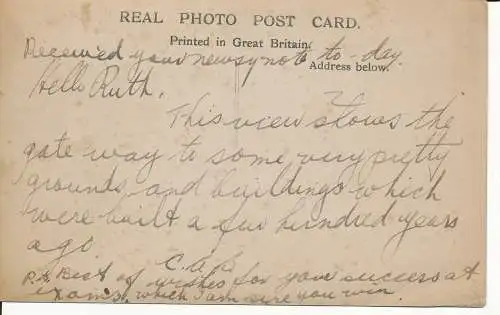 REAL PHOTO POST CARD.
Printed in Great Britain.
Received your newsy note to-day.
Address below.
Hello Ruth,
This view shows the
gate way to some very pretty
grounds and buildings which
were built a few hundred years
ago.
C.A.S
P.S. Best of wishes for your success at
exams, which I am sure you win.